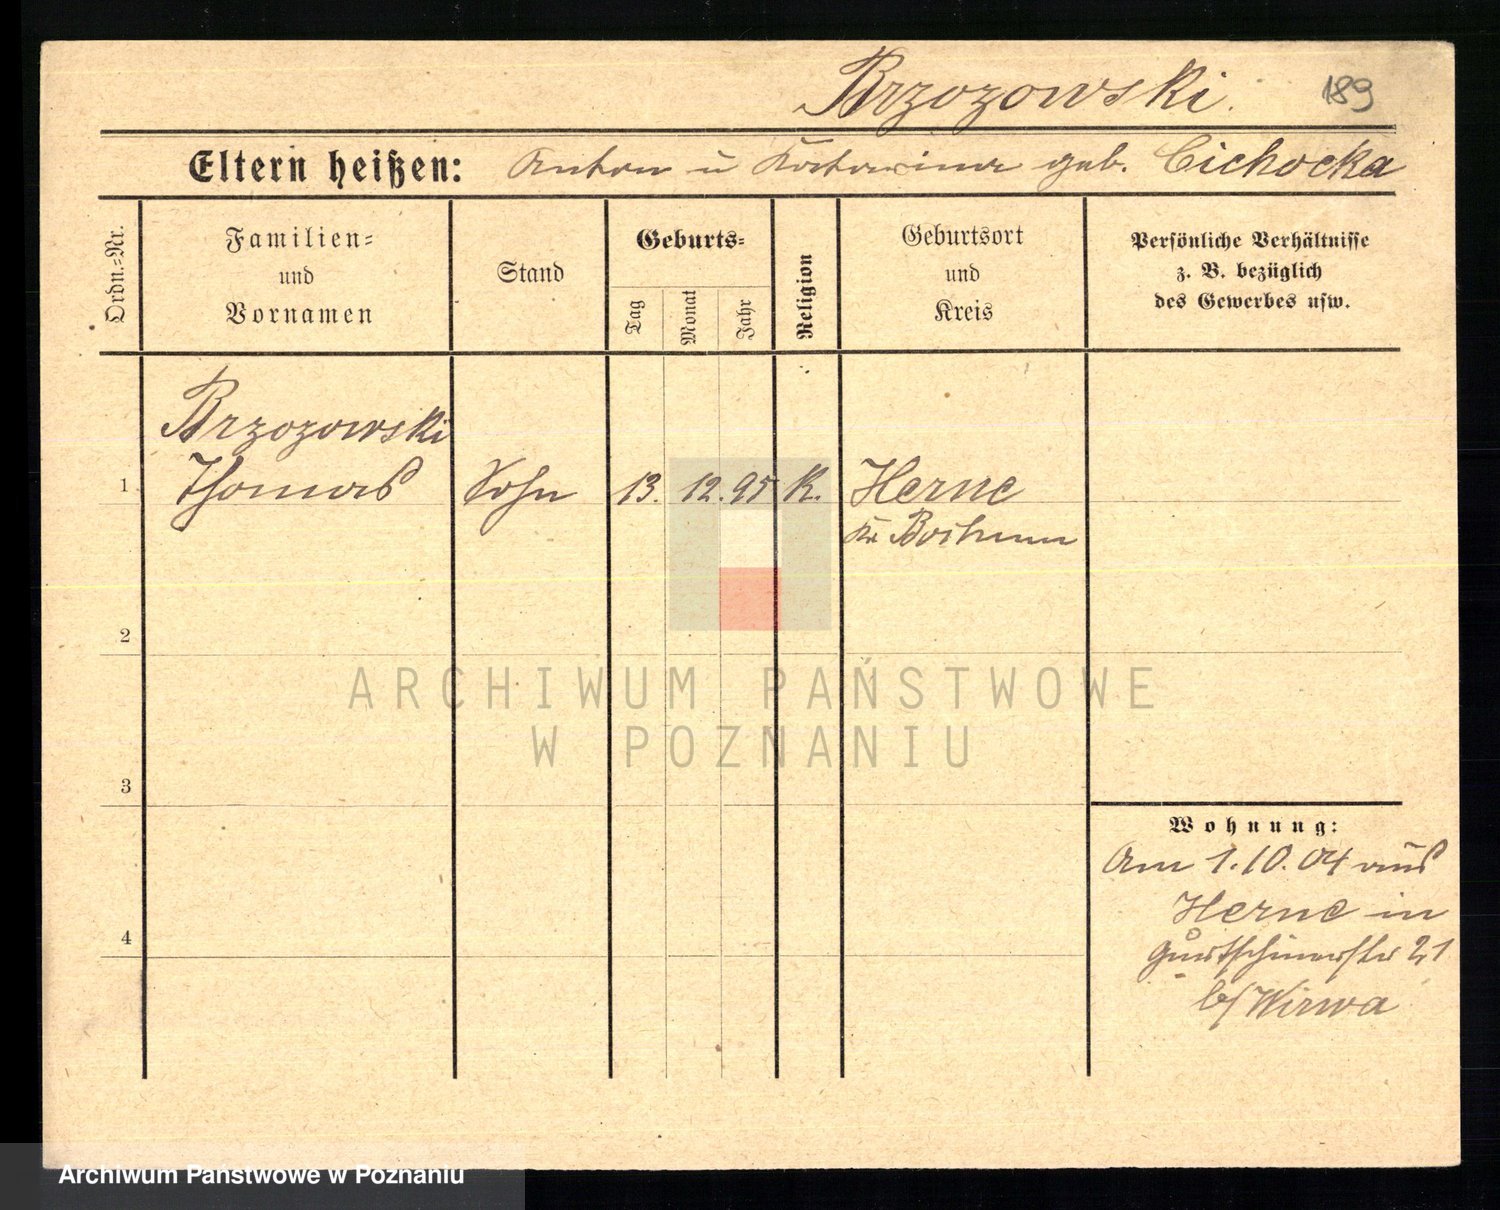 Brzozowski.
189
Eltern heißen: Anton u Katarina geb. Cichocka
Ordn.-Nr.
Familien-
und
Vornamen
Stand
Geburts-
Tag
Monat
Jahr
Religion
Geburtsort
und
Kreis
Persönliche Verhältnisse
z. B. bezüglich
des Gewerbes usw.
Brzozowski
1 Thomas Sohn 13. 12. 95 K. Herne
Kr Bochum
2
ARCHIWUM PAŃSTWOWE
W POZNANIU
3
Wohnung:
Am 1.10.04 aus
Herne in
4
Gurtschinerstr 21
b/ Wirwa
Archiwum Państwowe w Poznaniu